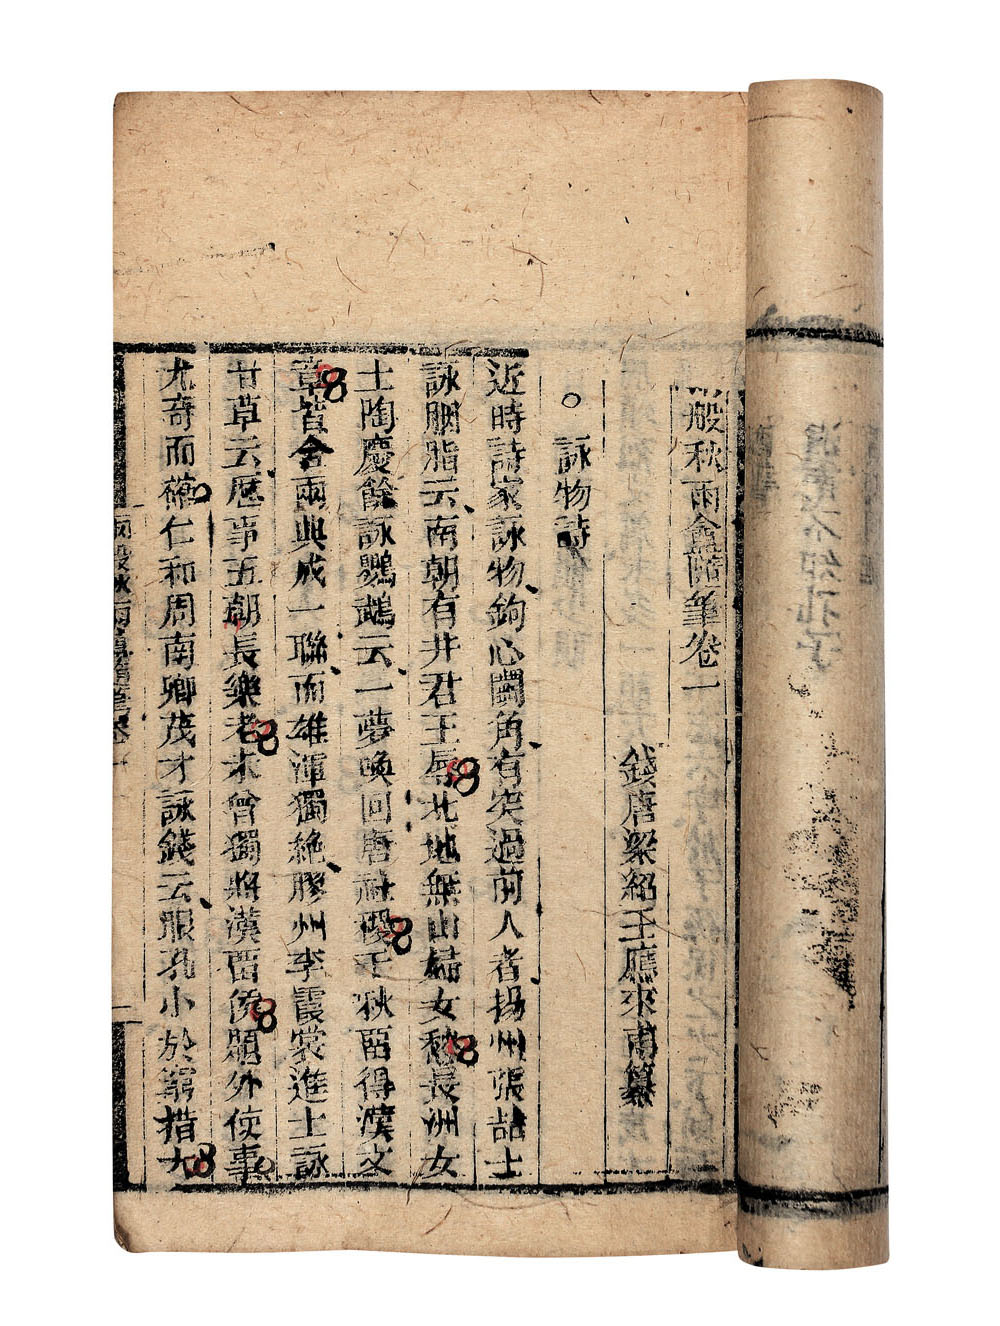 兩般秋雨盦隨筆卷一
錢唐梁紹壬應來甫纂
○詠物詩
近時詩家詠物鉤心鬭角有突過前人者揚州張喆士
詠胭脂云南朝有井君王辱北地無山婦女愁長洲女
士陶慶餘詠鸚鵡云一夢喚回唐社稷千秋畱得漢文
章皆合兩典成一聯而雄渾獨絶膠州李霞裳進士詠
甘草云歴事五朝長樂老未曾獨將漢畱侯題外使事
尤奇而確仁和周南卿茂才詠錢云眼孔小於窮措大
兩般秋雨盦隨筆卷一